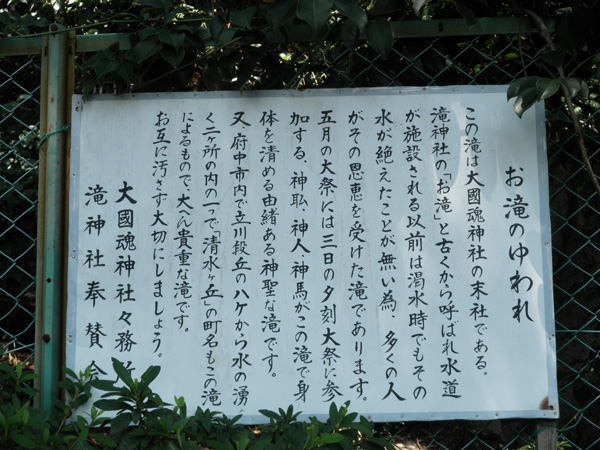 お滝のゆわれ
この滝は大國魂神社の末社である。
滝神社の「お滝」と古くから呼ばれ水道
が施設される以前は渇水時でもその
水が絶えたことが無い為、多くの人
がその恩恵を受けた滝であります。
五月の大祭には三日の夕刻大祭に参
加する、神職、神人、神馬がこの滝で身
体を清める由緒ある神聖な滝です。
又、府中市内で立川段丘のハケから水の湧
く二ヶ所の内の一つで「清水ヶ丘」の町名もこの滝
によるもので、大へん貴重な滝です。
お互に汚さず大切にしましょう。
大國魂神社々務所
滝神社奉賛会